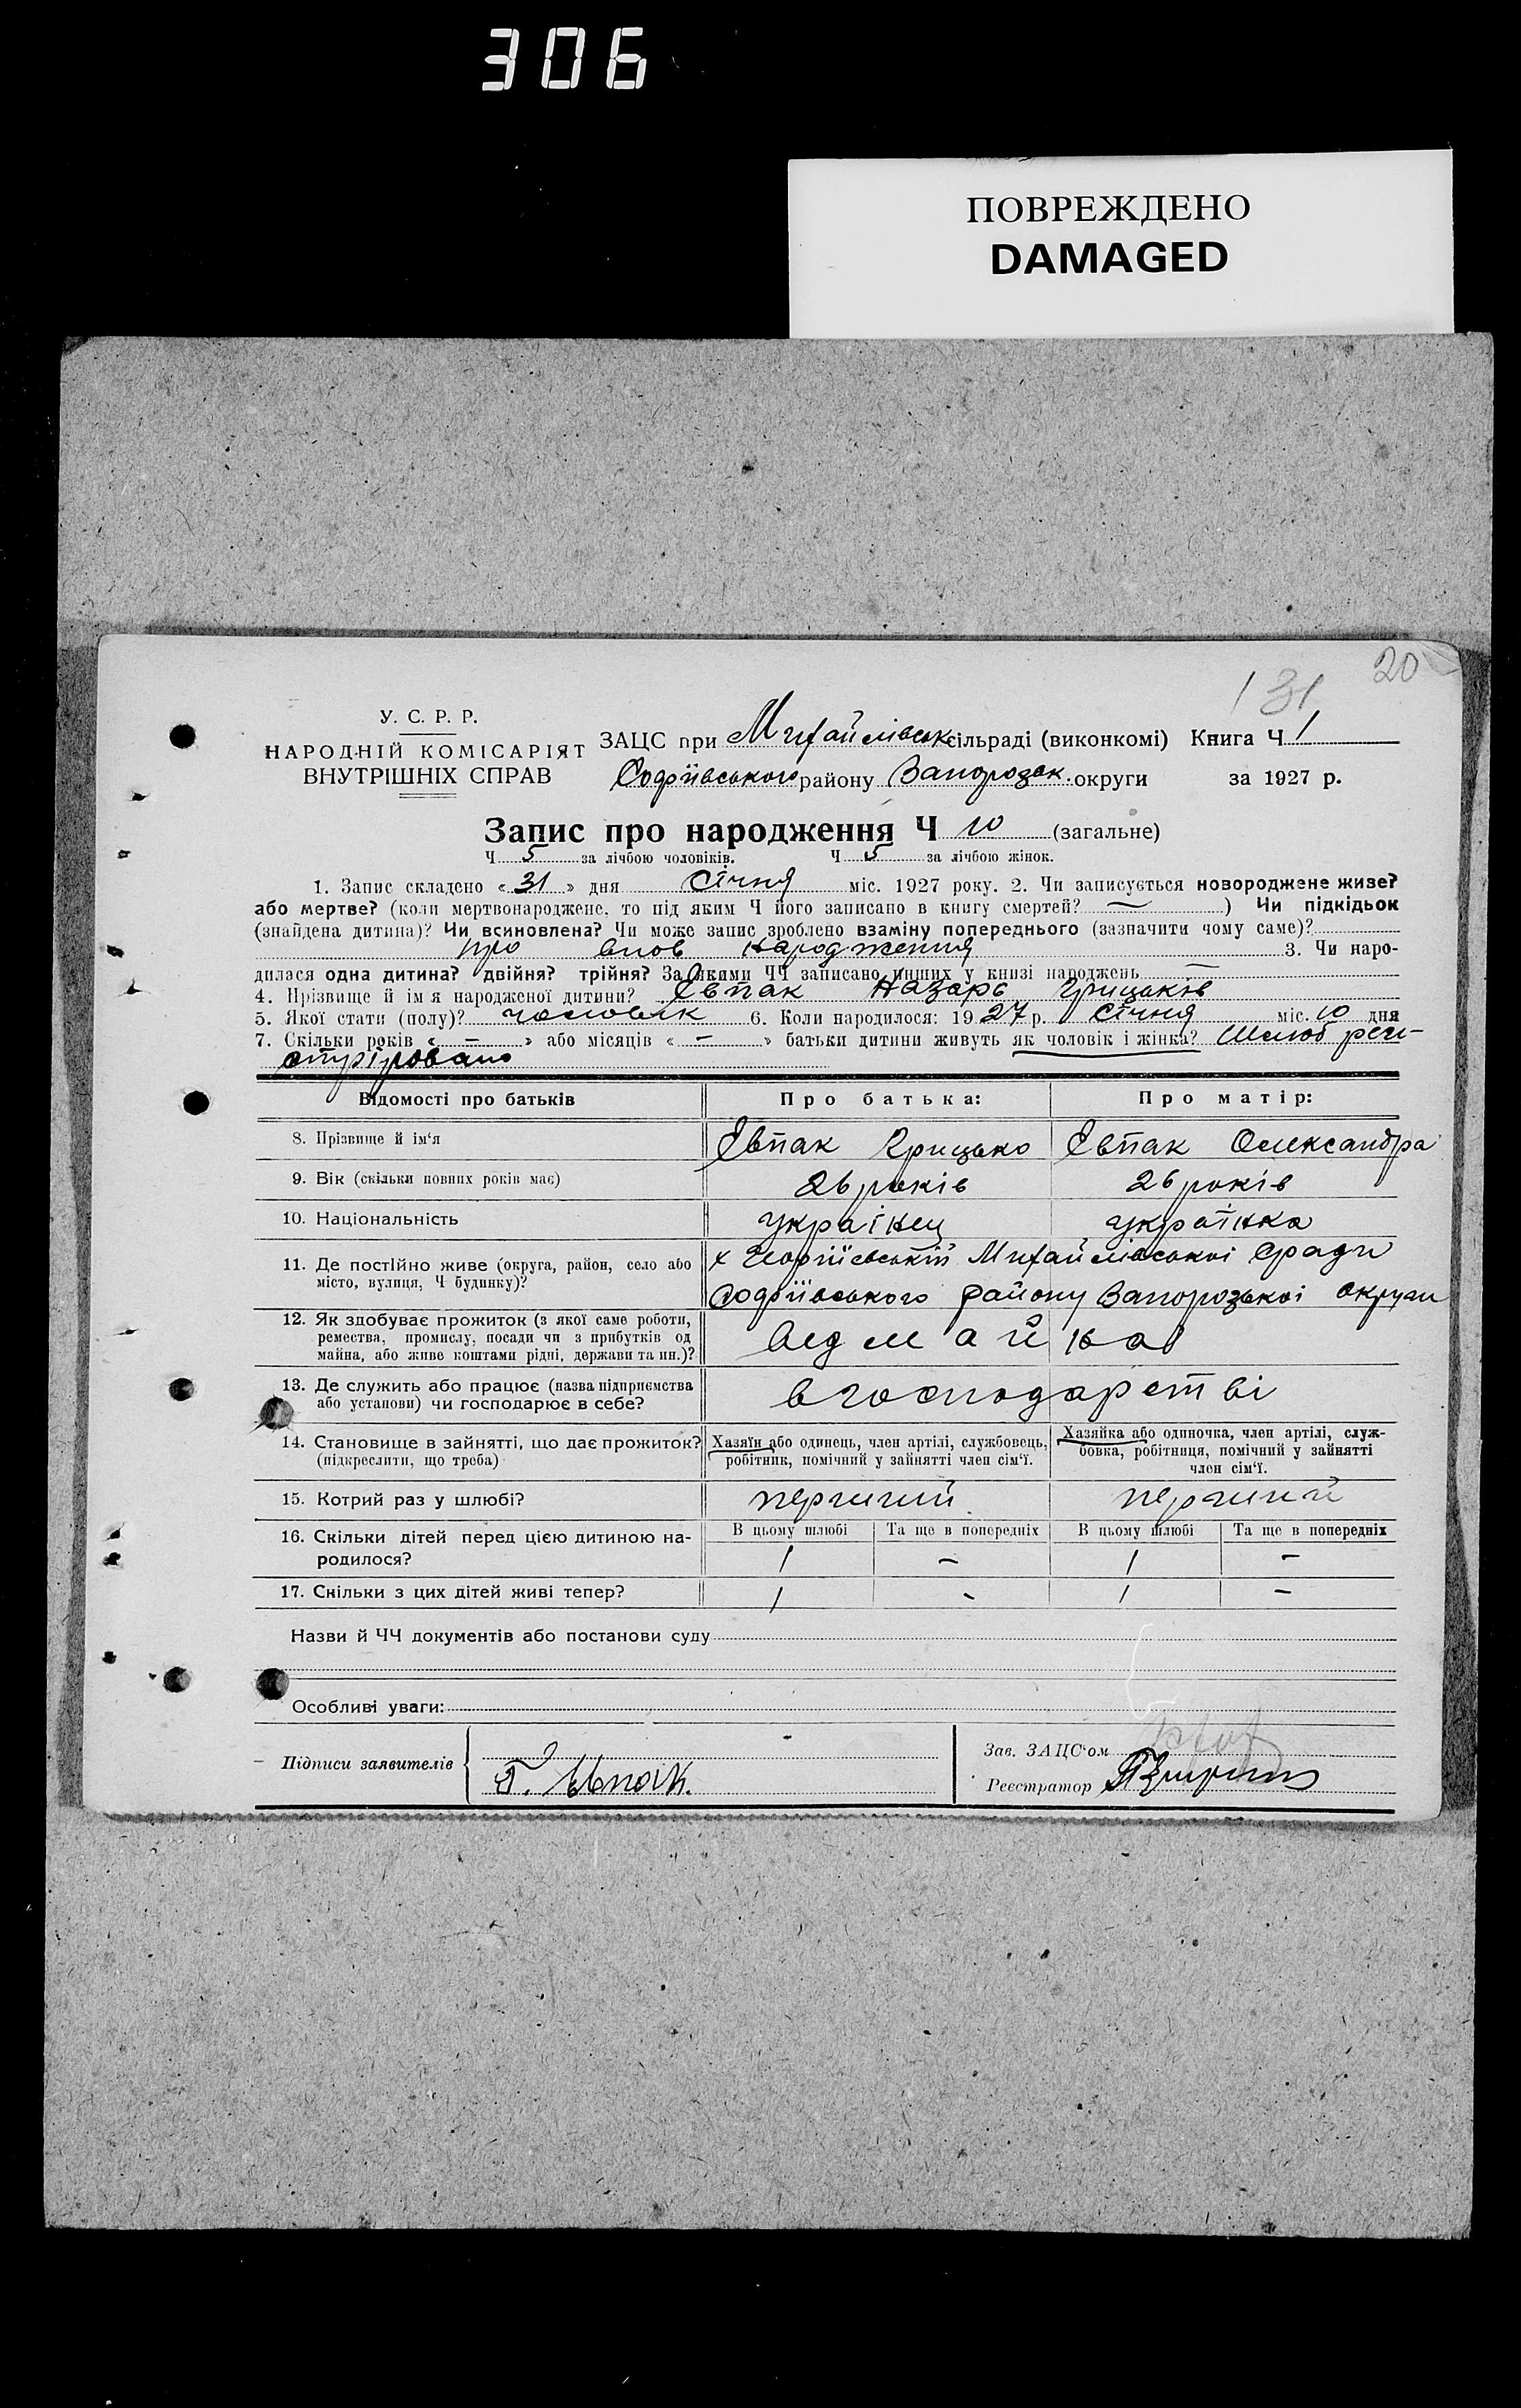 306
ПОВРЕЖДЕНО
DAMAGED
20
131
У. С. Р. Р.
НАРОДНІЙ КОМІСАРІЯТ
ВНУТРІШНІХ СПРАВ
ЗАЦС при Михайлівськ сільраді (виконкомі) Книга Ч 1
Софіївського району Запорозьк. округи за 1927 р.
Запис про народження Ч 10 (загальне)
Ч 5 за лічбою чоловіків. Ч 5 за лічбою жінок.
1. Запис складено «31» дня Січня міс. 1927 року. 2. Чи записується новороджене живе?
або мертве? (коли мертвонароджене, то під яким Ч його записано в книгу смертей? —) Чи підкідьок
(знайдена дитина)? Чи всиновлена? Чи може запис зроблено взаміну попереднього (зазначити чому саме)?
про внов народження 3. Чи наро-
дилася одна дитина? двійня? трійня? За якими ЧЧ записано инших у книзі народжень —
4. Прізвище й ім'я народженої дитини? Євпак Назарь Грицьків
5. Якої стати (полу)? чоловік 6. Коли народилося: 1927 р. Січня міс. 10 дня
7. Скільки років « – » або місяців « – » батьки дитини живуть як чоловік і жінка? Шлюб регі-
стріровано
Відомості про батьків Про батька: Про матір:
8. Прізвище й ім'я Євпак Грицько Євпак Олександра
9. Вік (скільки повних років має) 26 років 26 років
10. Національність українец українка
11. Де постійно живе (округа, район, село або
місто, вулиця, Ч будинку)?
х Георгіївській Михайлівської сради
Софіївського району Запорозької округи
12. Як здобуває прожиток (з якої саме роботи,
ремества, промислу, посади чи з прибутків од
майна, або живе коштами рідні, держави та ин.)?
від майна
13. Де служить або працює (назва підприємства
або установи) чи господарює в себе?
в господарстві
14. Становище в зайнятті, що дає прожиток?
(підкреслити, що треба)
Хазяїн або одинець, член артілі, службовець,
робітник, помічний у зайнятті член сім'ї.
Хазяйка або одиночка, член артілі, служ-
бовка, робітниця, помічний у зайнятті
член сім'ї.
15. Котрий раз у шлюбі? перший перший
16. Скільки дітей перед цією дитиною на-
родилося?
В цьому шлюбі Та ще в попередніх В цьому шлюбі Та ще в попередніх
1 – 1 –
17. Скільки з цих дітей живі тепер? 1 - 1 –
Назви й ЧЧ документів або постанови суду
Особливі уваги:
Підписи заявителів Г. Євпак.
Зав. ЗАЦС'ом
Реєстратор